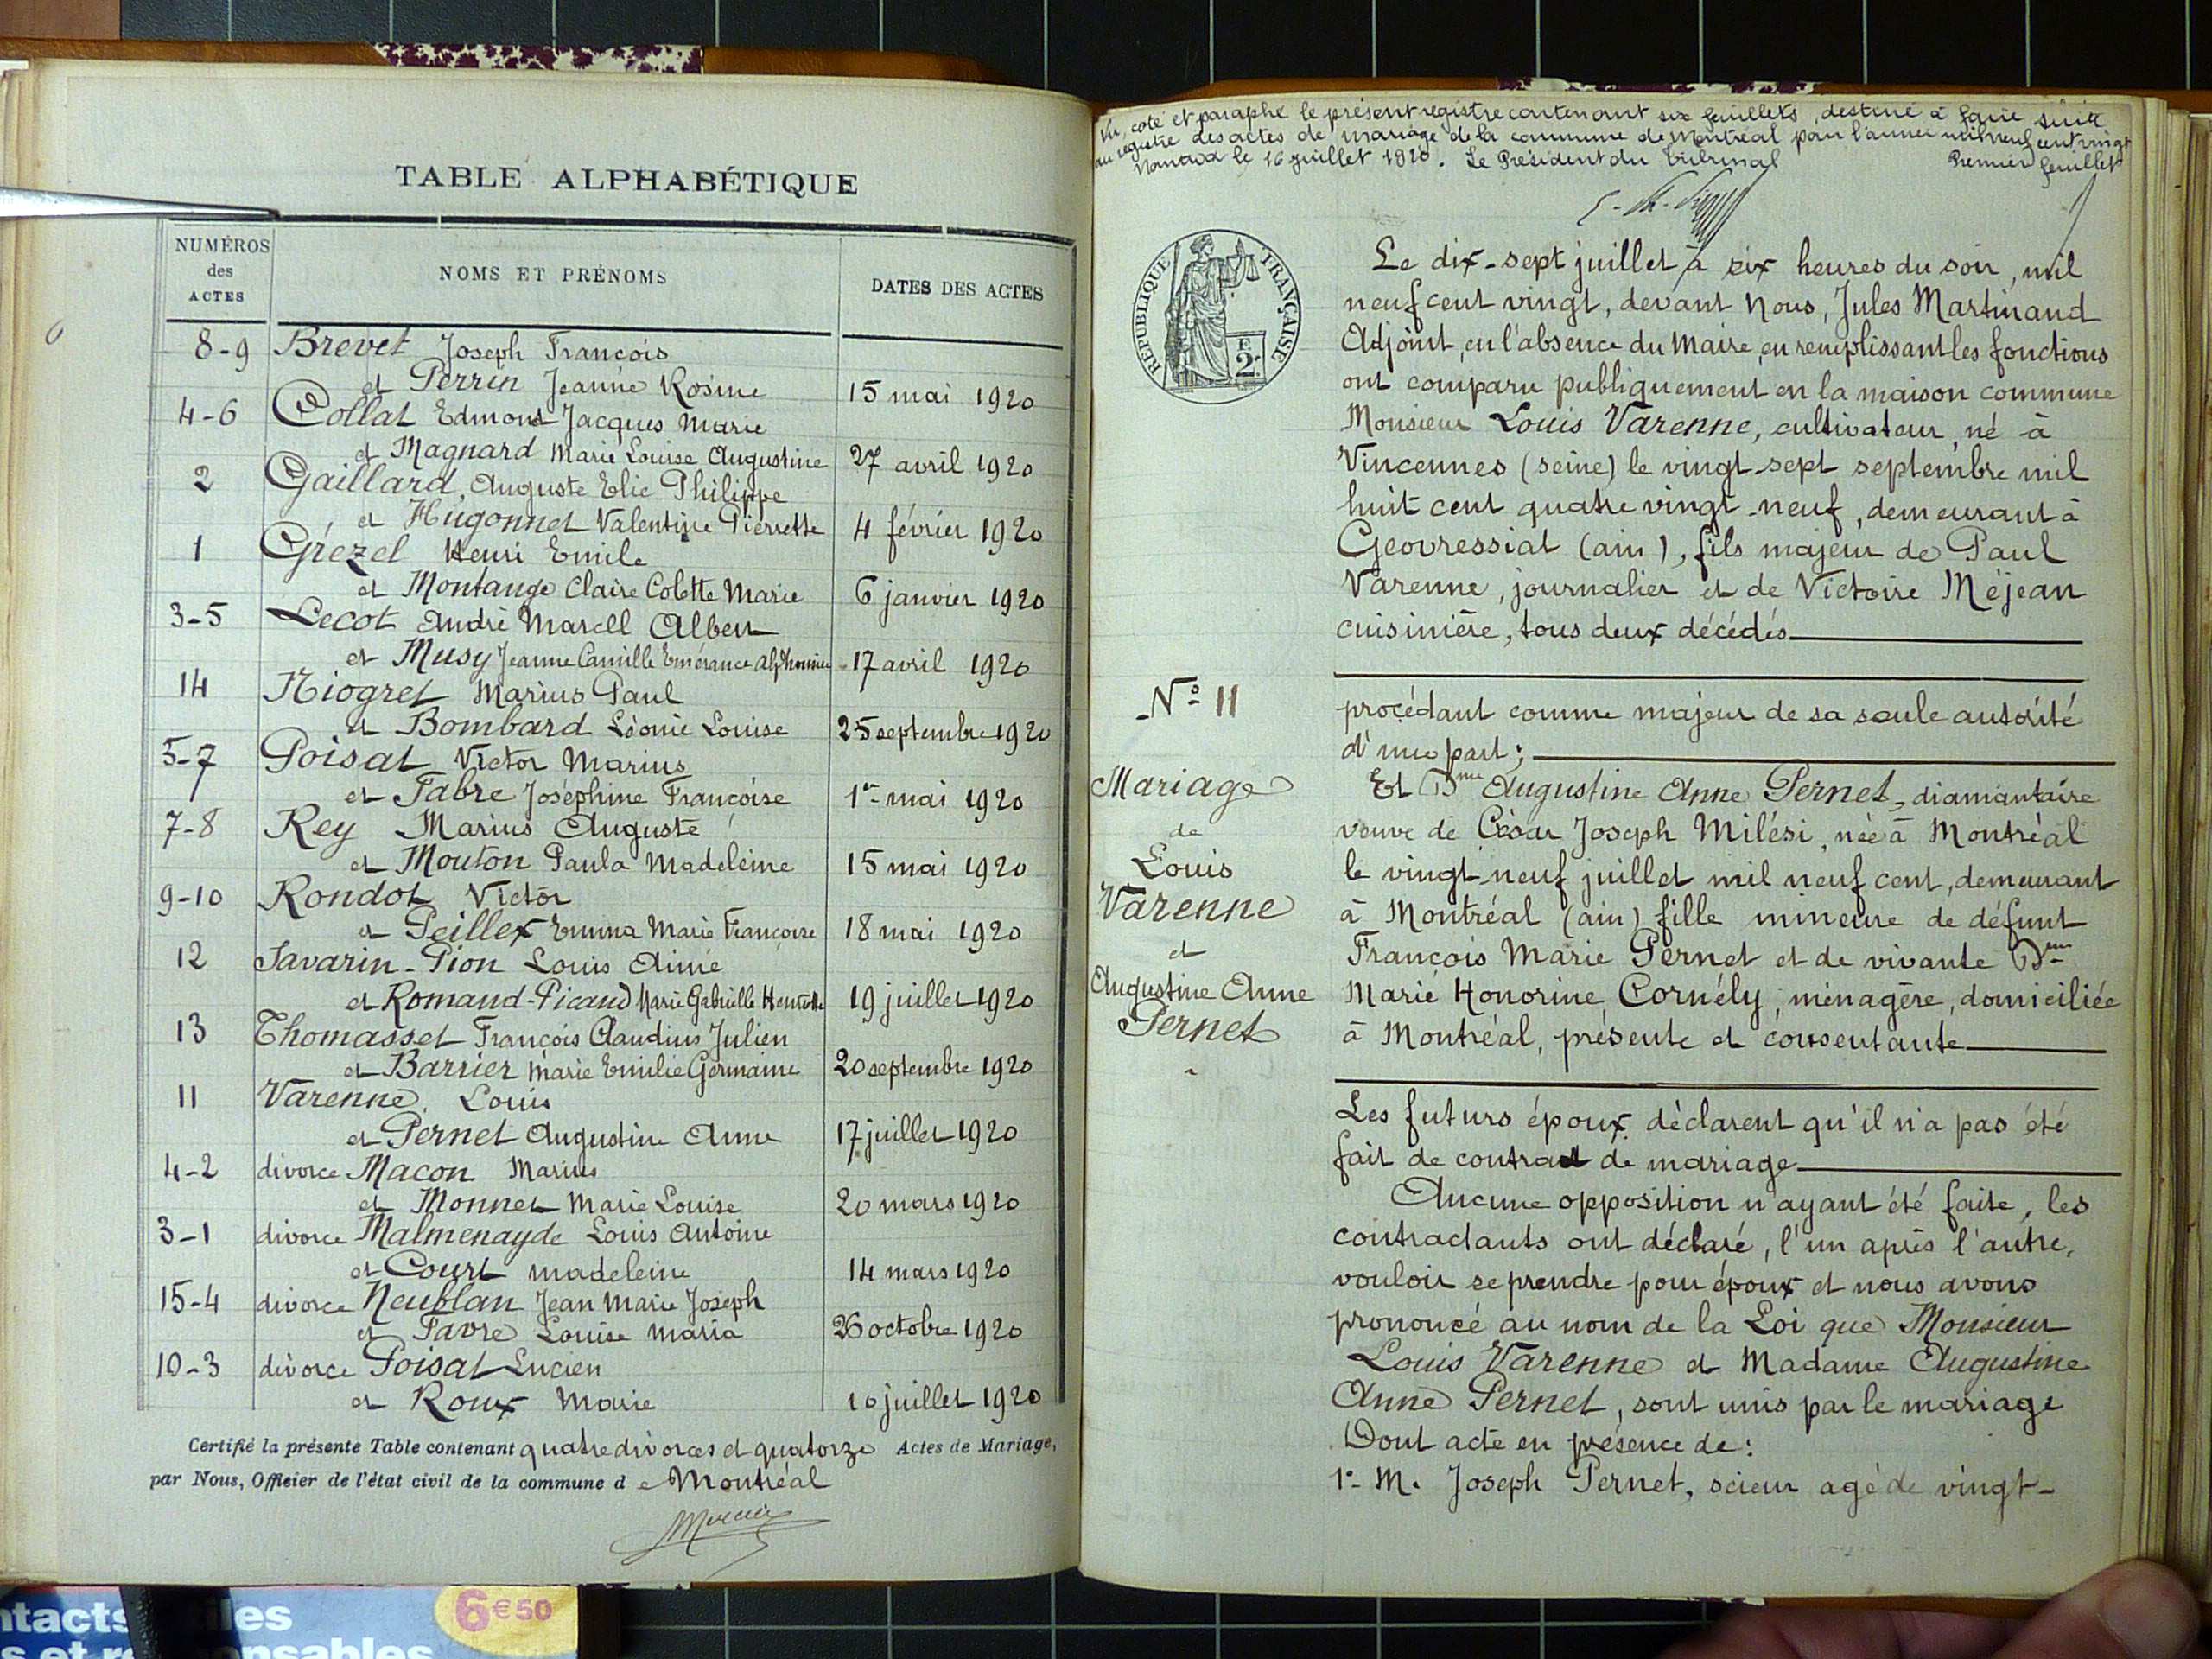 TABLE ALPHABÉTIQUE
NUMÉROS
des
ACTES
NOMS ET PRÉNOMS
DATES DES ACTES
8-9 Brevet Joseph François
et Perrin Jeanne Rosine 15 mai 1920
4-6 Collat Edmond Jacques Marie
et Magnard Marie Louise Augustine 27 avril 1920
2 Gaillard, Auguste Elie Philippe
et Hugonnet Valentine Pierrette 4 février 1920
1 Grézel Henri Emile
et Montange Claire Colette Marie 6 janvier 1920
3-5 Lecot André Marcell Albert
et Musy Jeanne Camille Emérance 17 avril 1920
14 Niogret Marius Paul
et Bombard Léonie Louise 25 septembre 1920
5-7 Poisat Victor Marius
et Fabre Joséphine Françoise 1er mai 1920
7-8 Rey Marius Auguste
et Mouton Paula Madeleine 15 mai 1920
9-10 Rondot Victor
et Peillex Emma Marie Françoise 18 mai 1920
12 Savarin-Pion Louis Aimé
et Romand-Picaud Marie Gabrielle Henriette 19 juillet 1920
13 Thomasset François Claudius Julien
et Barrier Marie Emilie Germaine 20 septembre 1920
11 Varenne. Louis
et Pernet Augustine Anne 17 juillet 1920
4-2 divorce Macon Marius
et Monnet Marie Louise 20 mars 1920
3-1 divorce Malmenayde Louis Antoine
et Court madeleine 14 mars 1920
15-4 divorce Neublan Jean Marie Joseph
et Favre Louise Maria 26 octobre 1920
10-3 divorce Poisat Lucien
et Roux Marie 10 juillet 1920
Certifié la présente Table contenant quatre divorces et quatorze Actes de Mariage,
par Nous, Officier de l'état civil de la commune de Montréal
6€50
ntacts les
s et nsables
Vu, coté et paraphé le présent registre contenant six feuillets, destiné à faire suite
au registre des actes de mariage de la commune de Montréal pour l'année mil neuf cent vingt
Nantua le 16 juillet 1920. Le Président du Tribunal Premier feuillet
RÉPUBLIQUE FRANÇAISE
2
Le dix-sept juillet à six heures du soir, mil
neuf cent vingt, devant Nous, Jules Martinand
Adjoint, en l'absence du Maire, en remplissant les fonctions
ont comparu publiquement en la maison commune
Monsieur Louis Varenne, cultivateur, né à
Vincennes (seine) le vingt-sept septembre mil
huit cent quatre vingt-neuf, demeurant à
Geovressiat (ain), fils majeur de Paul
Varenne, journalier et de Victoire Méjean
cuisinière, tous deux décédés
N° 11
procédant comme majeur de sa seule autorité
d'une part;
Mariage
de
Louis
Varenne
et
Augustine Anne
Pernet
Et Dme Augustine Anne Pernet, diamantaire
veuve de César Joseph Milési, née à Montréal
le vingt neuf juillet mil neuf cent, demeurant
à Montréal (ain) fille mineure de défunt
François Marie Pernet et de vivante Dme
Marie Honorine Cornély, ménagère, domiciliée
à Montréal, présente et consentante
Les futurs époux déclarent qu'il n'a pas été
fait de contrat de mariage
Aucune opposition n'ayant été faite, les
contractants ont déclaré, l'un après l'autre,
vouloir se prendre pour époux et nous avons
prononcé au nom de la Loi que Monsieur
Louis Varenne et Madame Augustine
Anne Pernet, sont unis par le mariage
Dont acte en présence de:
1° M. Joseph Pernet, scieur agé de vingt-